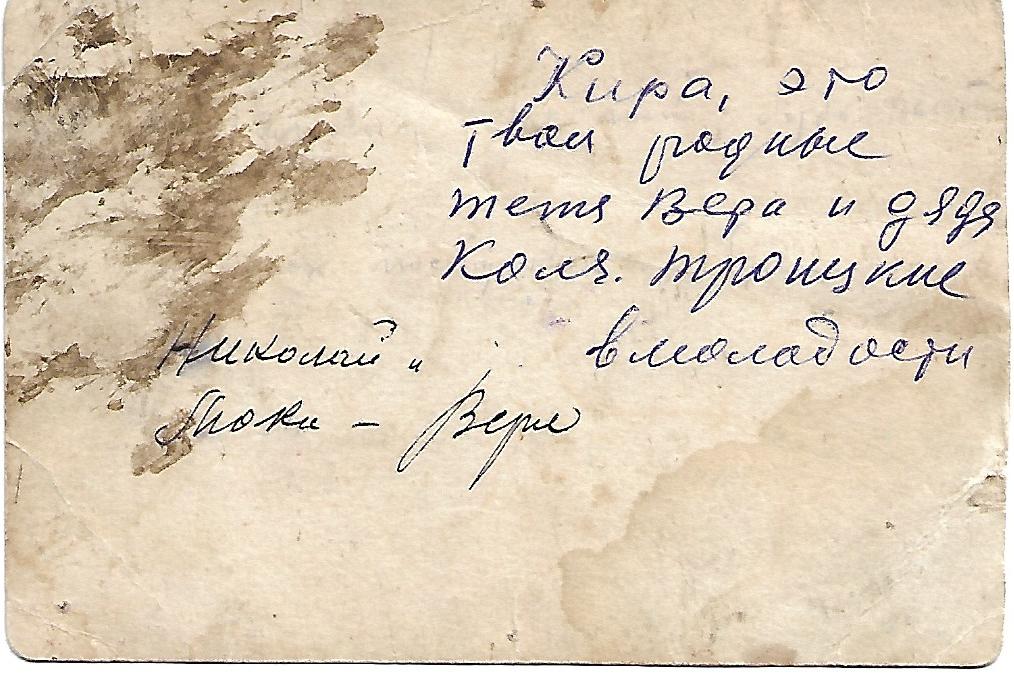 Кира, это
твои родные
тетя Вера и дядя
Коля. Троицкие
в молодости
Николай и
Вера